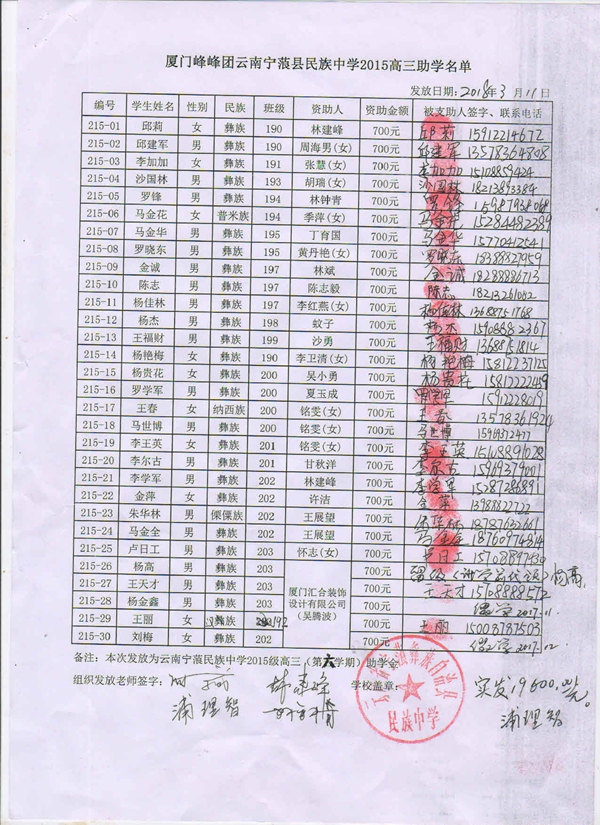 厦门峰峰团云南宁蒗县民族中学2015高三助学名单
发放日期:2018年3月11日
编号 学生姓名 性别 民族 班级 资助人 资助金额 被支助人签字、联系电话
215-01 邱莉 女 彝族 190 林建峰 700元 邱莉 15912214672
215-02 邱建军 男 彝族 190 周海男(女) 700元 邱建军 13578364808
215-03 李加加 女 彝族 191 张慧(女) 700元 李加加 15108859424
215-04 沙国林 男 彝族 193 胡瑞(女) 700元 沙国林 18213893384
215-05 罗锋 男 彝族 194 林钟青 700元 罗锋
215-06 马金花 女 普米族 194 季萍(女) 700元 马金花 15284482389
215-07 马金华 男 彝族 195 丁育国 700元 马金华 15770412541
215-08 罗晓东 男 彝族 195 黄丹艳(女) 700元 罗晓东
215-09 金诚 男 彝族 197 林斌 700元 金诚 18288886713
215-10 陈志 男 彝族 197 陈志毅 700元 陈志
215-11 杨佳林 男 彝族 197 李红燕(女) 700元 杨佳林
215-12 杨杰 男 彝族 198 蚊子 700元 杨杰
215-13 王福财 男 彝族 199 沙勇 700元 王福财
215-14 杨艳梅 女 彝族 190 李卫清(女) 700元 杨艳梅
215-15 杨贵花 女 彝族 200 吴小勇 700元 杨贵花
215-16 罗学军 男 彝族 200 夏玉成 700元 罗学军
215-17 王春 女 纳西族 200 铭雯(女) 700元 王春 13578361924
215-18 马世博 男 彝族 200 铭雯(女) 700元 马世博
215-19 李王英 女 彝族 201 铭雯(女) 700元 李王英
215-20 李尔古 男 彝族 201 甘秋洋 700元 李尔古 15969379001
215-21 李学军 男 彝族 202 林建峰 700元 李学军 15287286891
215-22 金萍 女 彝族 202 许洁 700元 金萍
215-23 朱华林 男 傈僳族 202 王展望 700元 朱华林 18787632661
215-24 马金全 男 彝族 202 王展望 700元 马金全 18760974814
215-25 卢日工 男 彝族 203 怀志(女) 700元 卢日工 15708897430
215-26 杨高 男 彝族 203 700元 留级 杨高
215-27 王天才 男 彝族 203 厦门汇合装饰 700元 王天才 15708888572
215-28 杨金鑫 男 彝族 203 设计有限公司 700元 2017.11.
215-29 王丽 女 彝族 192 (吴腾波) 700元 王丽 15008787503
215-30 刘梅 女 彝族 202 700元 2017.12.
备注:本次发放为云南宁蒗民族中学2015级高三(第六学期)助学金
组织发放老师签字: 林建峰 学校盖章: 实发19600.元
浦理智 浦理智
民族中学